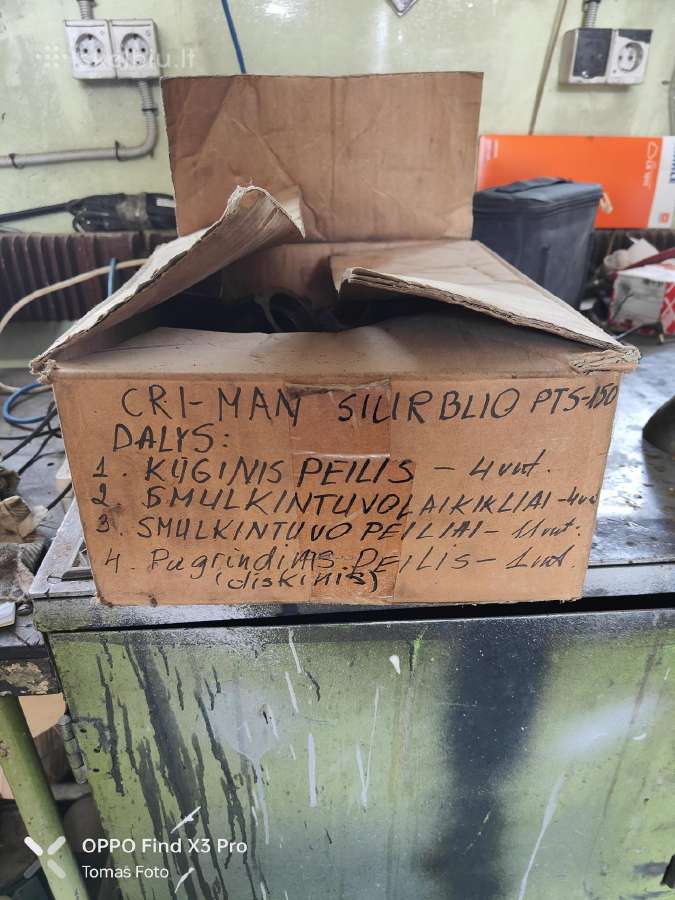 skelbiu.lt
CRI-MAN SILIRBLIO PTS-150
DALYS:
1. KŪGINIS PEILIS - 4 vnt.
2 SMULKINTUVO LAIKIKLIAI - 4vn
3. SMULKINTUVO PEILIAI - 11 vnt.
4. Pagrindinis PEILIS - 1 vnt.
(diskinis)
OPPO Find X3 Pro
Tomas Foto